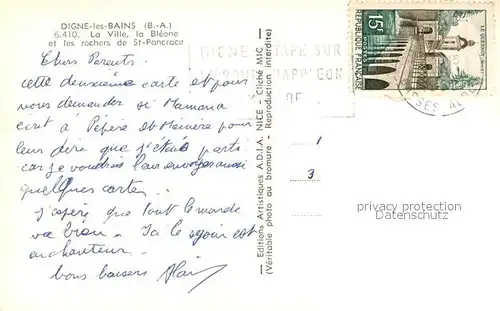 DIGNE-les-BAINS (B.-A.)
6.410. La Ville, la Bléone
et les rochers de St-Pancrace
Chers Parents.
cette deuxième carte et pour
vous demander si Mamana
ecrit à Pépère et Mémère pour
leur dire que j'étais parti
car je voudrais leur envoyer aussi
quelques cartes.
J'espère que tout le monde
va bien. Ici le sejour est
enchanteur.
bons baisers Alain
Editions Artistiques A.D.I.A. NICE - Cliché MIC
(Véritable photo au bromure - Reproduction interdite)
DIGNE ETAPE SUR
DE
REPUBLIQUE FRANÇAISE
15F
POSTES
LE QUESNOY
SES ALP
1
3
privacy protection
Datenschutz